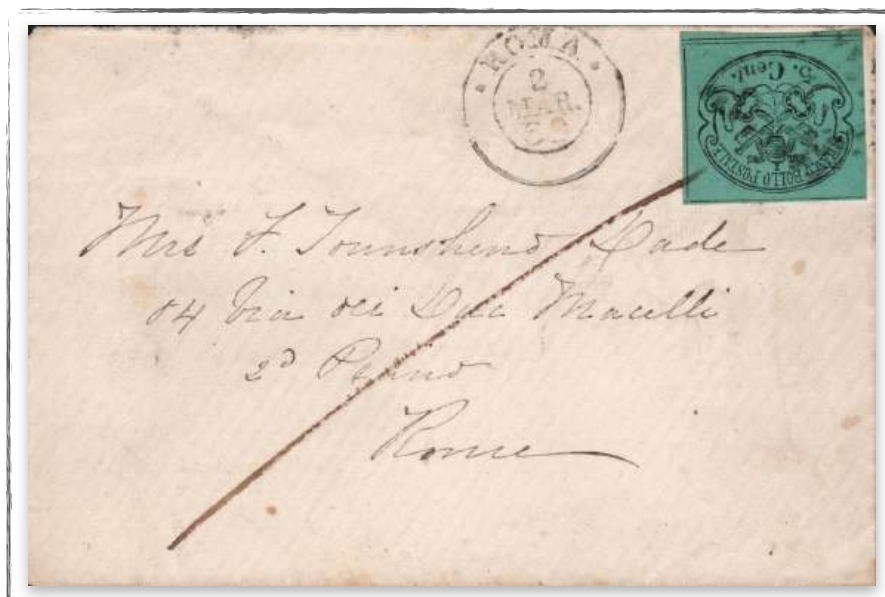 ROMA
2
MAR.
3. Cent.
FRANCO BOLLO POSTALE
Mrs F. Townshend Dade
84 Via dei Due Macelli
2d Piano
Rome